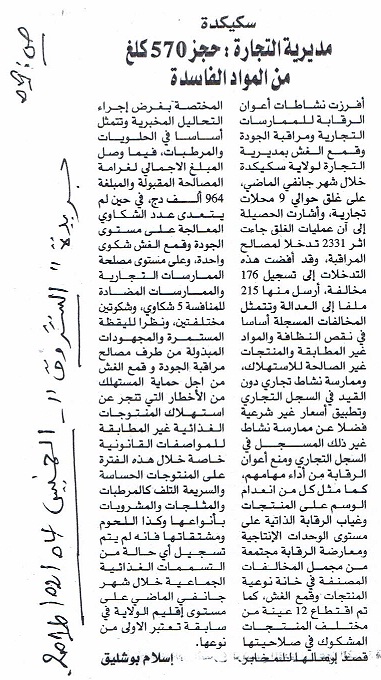 سكيكدة
مديرية التجارة : حجز 570 كلغ
من المواد الفاسدة
أفرزت نشاطات أعوان
الرقابة للممارسات
التجارية ومراقبة الجودة
وقمع الغش بمديرية
التجارة لولاية سكيكدة
خلال شهر جانفي الماضي،
على غلق حوالي 9 محلات
تجارية، وأشارت الحصيلة
إلى أن عمليات الغلق جاءت
اثر 2331 تدخلا لمصالح
المراقبة، وقد أفضت هذه
التدخلات إلى تسجيل 176
مخالفة، أرسل منها 215
ملفا إلى العدالة وتتمثل
المخالفات المسجلة أساسا
في نقص النظافة والمواد
غير المطابقة والمنتجات
غير الصالحة للاستهلاك،
وممارسة نشاط تجاري دون
القيد في السجل التجاري
وتطبيق أسعار غير شرعية
فضلا عن ممارسة نشاط
غير ذلك المسجل في
السجل التجاري ومنع أعوان
الرقابة من أداء مهامهم،
كما مثل كل من انعدام
الوسم على المنتجات
وغياب الرقابة الذاتية على
مستوى الوحدات الإنتاجية
ومعارضة الرقابة مجتمعة
من مجمل المخالفات
المصنفة في خانة نوعية
المنتجات وقمع الغش، كما
تم اقتطاع 12 عينة من
مختلف المنتجات
المشكوك في صلاحيتها
قصد إرسالها للمخابر
المختصة بغرض إجراء
التحاليل المخبرية وتتمثل
أساسا في الحلويات
والمرطبات، فيما وصل
المبلغ الاجمالي لغرامة
المصالحة المقبولة والمبلغة
964 ألف دج، في حين لم
يتعدى عدد الشكاوي
المعالجة على مستوى
الجودة وقمع الغش شكوى
واحدة، وعلى مستوى مصلحة
الممارسات التجارية
والممارسات المضادة
للمنافسة 5 شكاوي، وشكوتين
مختلفتين، ونظرا لليقظة
المستمرة والمجهودات
المبذولة من طرف مصالح
مراقبة الجودة و قمع الغش
من اجل حماية المستهلك
من الأخطار التي تنجر عن
استهلاك المنتوجات
الغذائية غير المطابقة
للمواصفات القانونية
خاصة خلال هذه الفترة
على المنتوجات الحساسة
والسريعة التلف كالمرطبات
والمثلجات والمشروبات
بأنواعها وكذا اللحوم
ومشتقاتها فانه لم يتم
تسجيل أي حالة من
التسممات الغذائية
الجماعية خلال شهر
جانفي الماضي على
مستوى إقليم الولاية في
سابقة تعتبر الاولى من
نوعها.
إسلام بوشليق
جريدة " الشروق " الخميس 2016/02/04
ص: 09